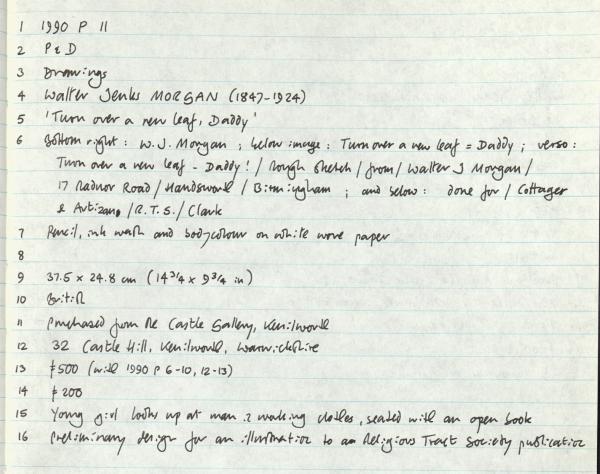 1 1990 P 11
2 P & D
3 Drawings
4 Walter Jenks MORGAN (1847-1924)
5 'Turn over a new leaf, Daddy'
6 Bottom right: W.J. Morgan; below image: Turn over a new leaf = Daddy; verso:
Turn over a new leaf - Daddy! / rough sketch / from / Walter J Morgan /
17 Radnor Road / Handsworth / Birmingham; and below: done for / Cottager
& Artizan, / R.T.S. / Clark
7 Pencil, ink wash and bodycolour on white wove paper
8
9 37.5 x 24.8 cm (14 3/4 x 9 3/4 in)
10 British
11 Purchased from the Castle Gallery, Kenilworth
12 32 Castle Hill, Kenilworth, Warwickshire
13 £500 (with 1990 P 6-10, 12-13)
14 £200
15 Young girl looks up at man in working clothes, seated with an open book
16 Preliminary design for an illustration to a Religious Tract Society publication